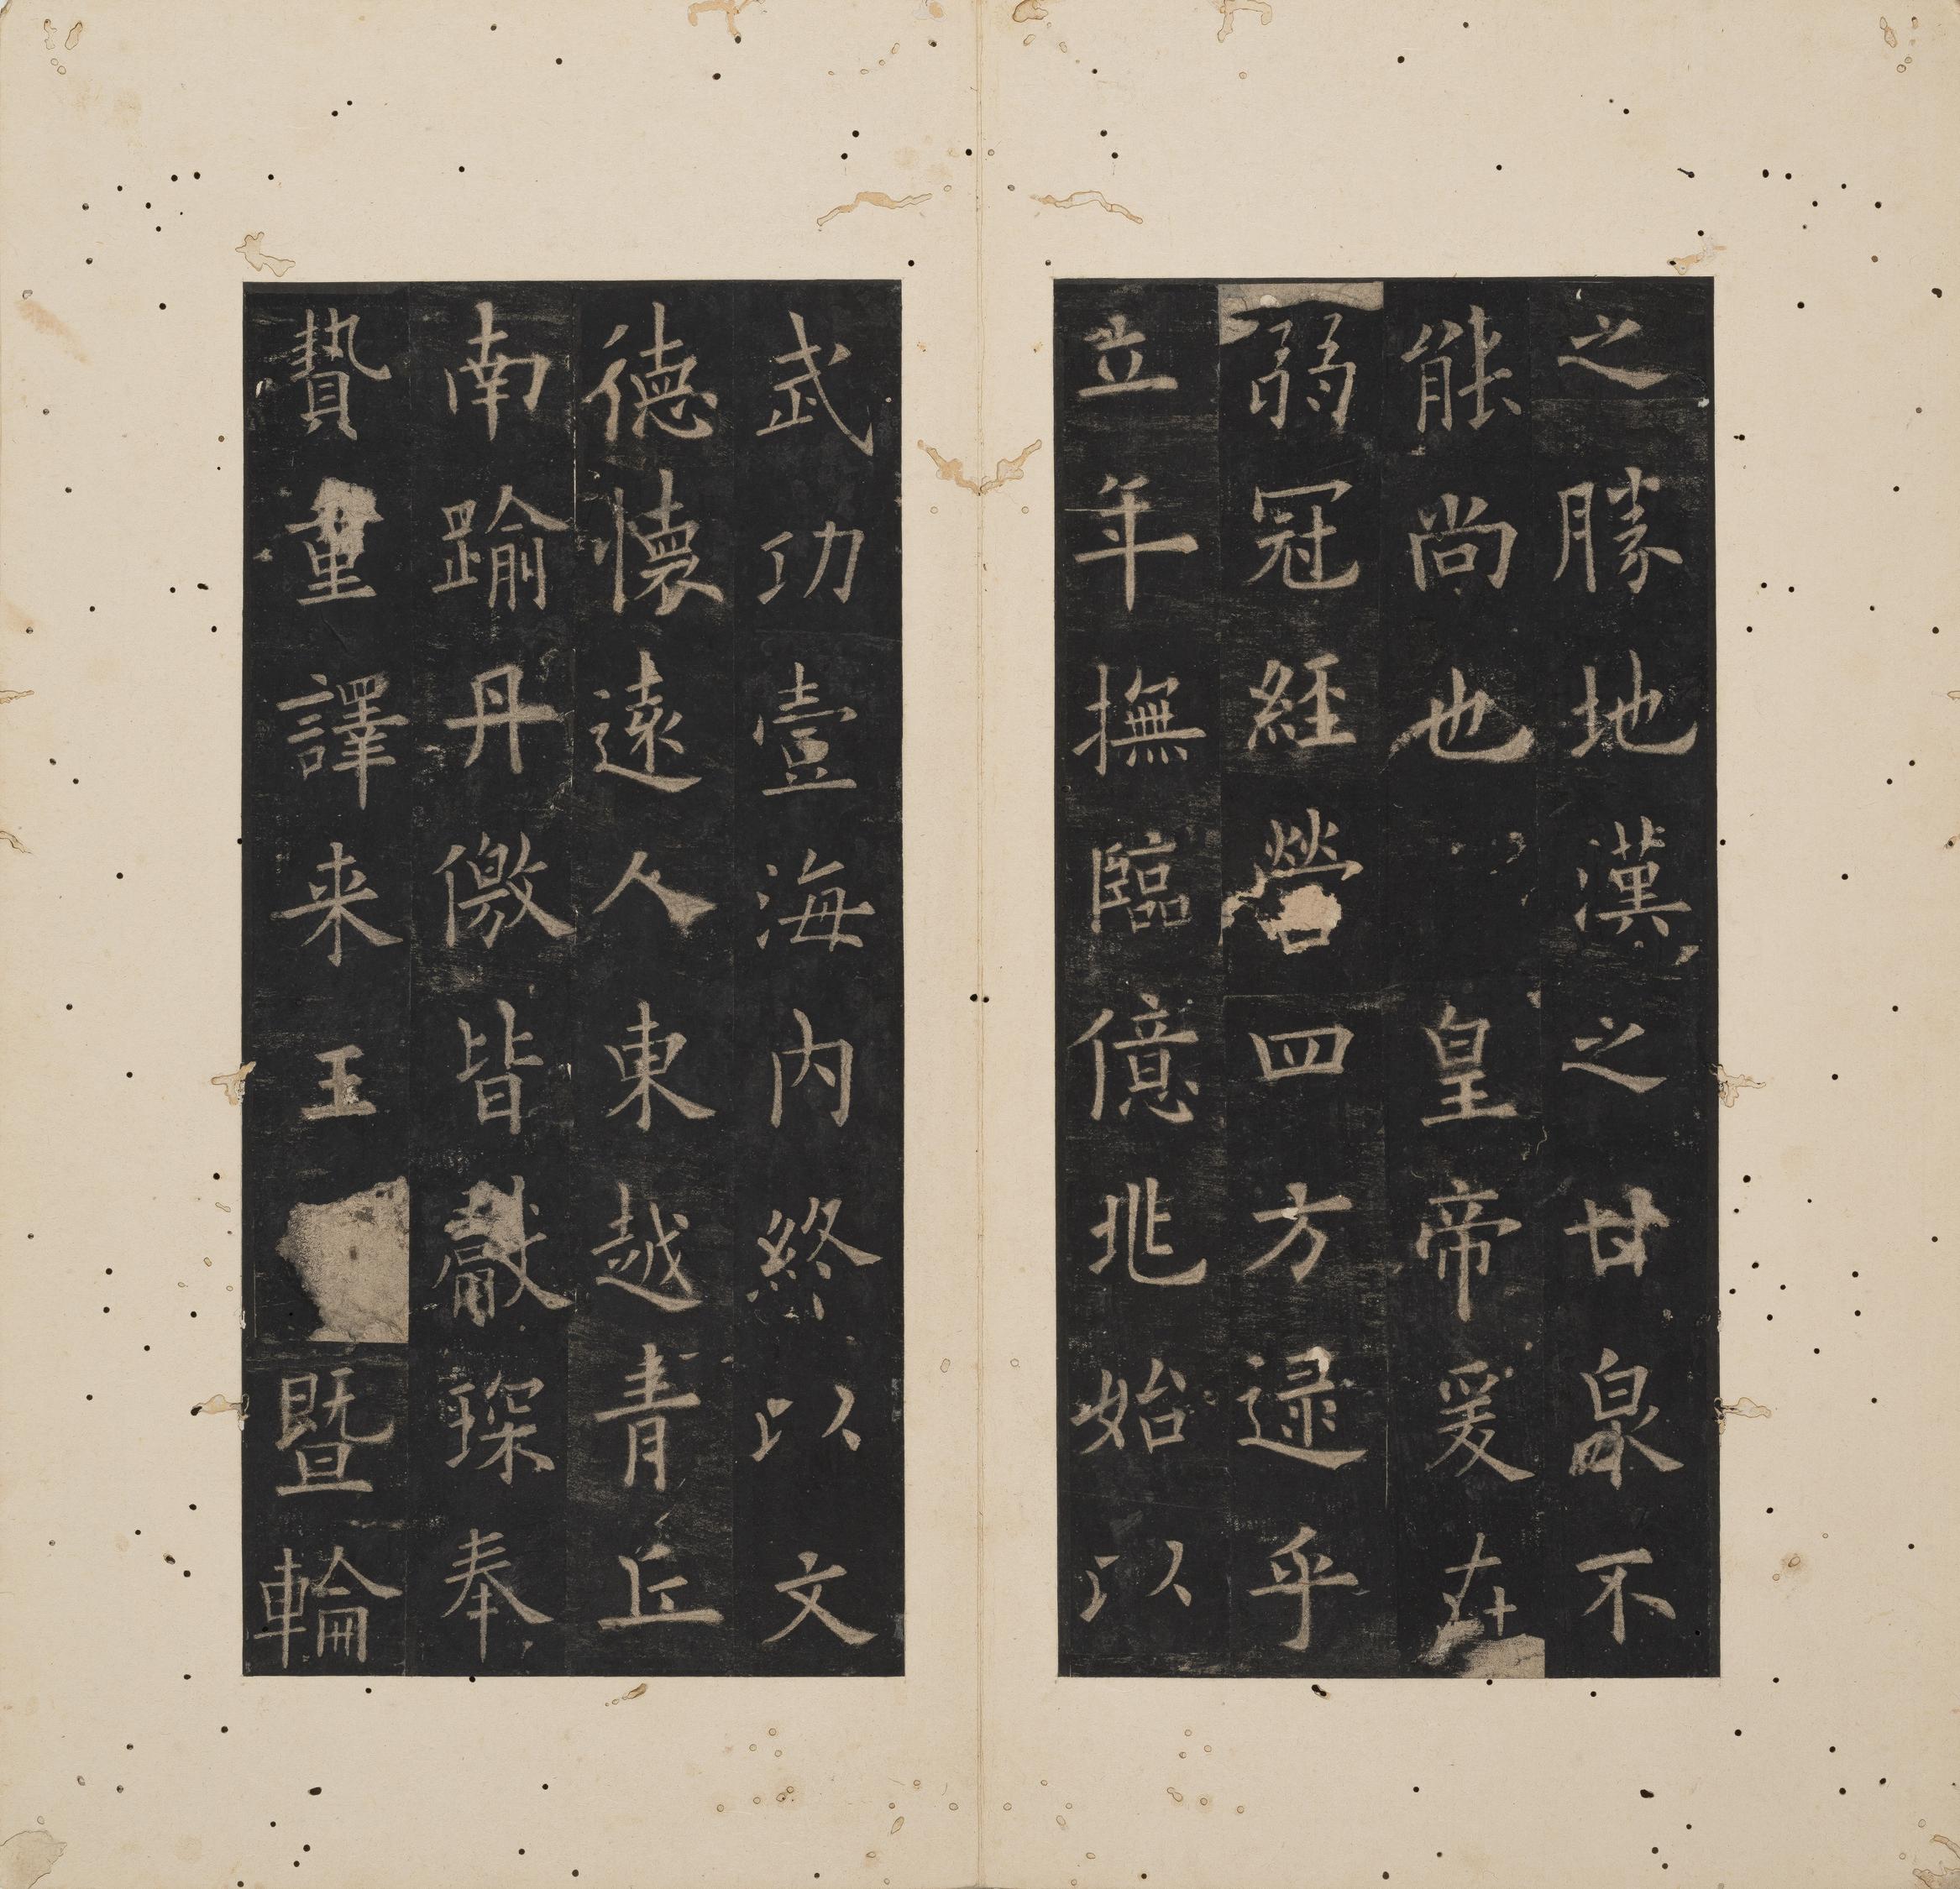 之勝地漢之甘泉不
能尚也皇帝爰在
弱冠經營四方逯乎
立年撫臨億兆始以
武功壹海內終以文
德懷遠人東越青丘
南踰丹僌皆獻琛奉
贄重譯来王暨輪